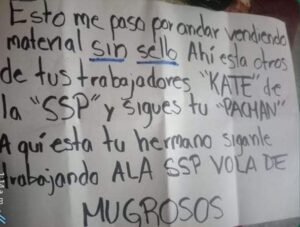 Esto me paso por andar vendiendo
material sin sello Ahi esta otros
de tus trabajadores "KATE" de
la "SSP" y sigues tu "PACHAN"
Aqui esta tu hermano siganle
trabajando ALA SSP VOLA DE
MUGROSOS